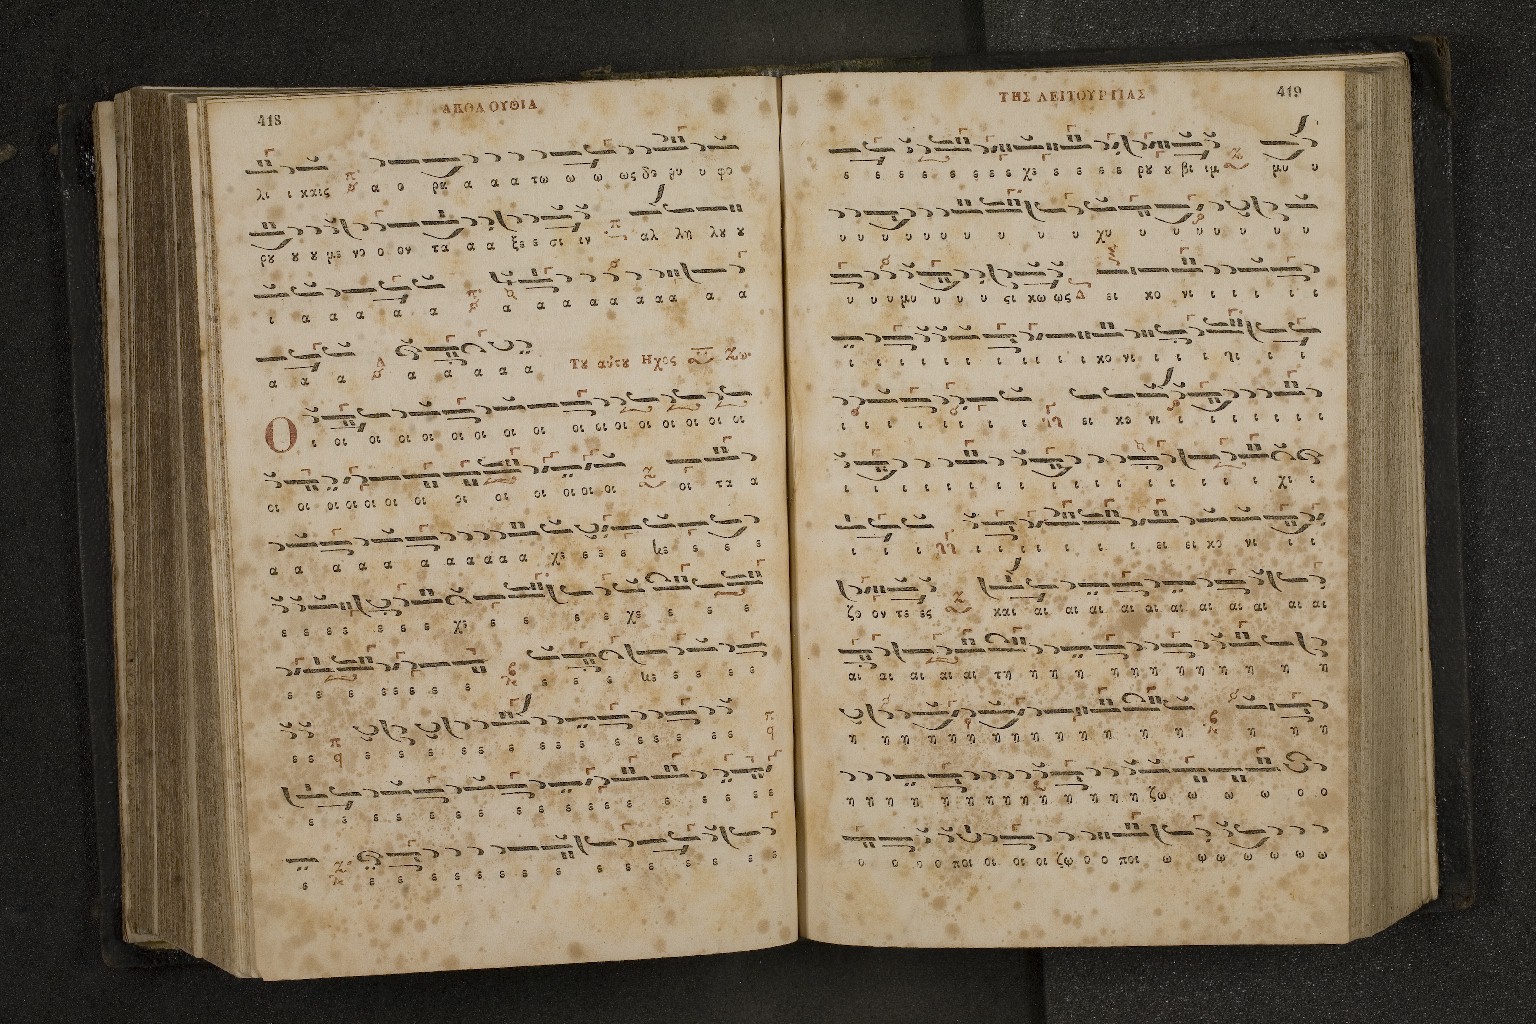 418
ΑΚΟΛΟΥΘΙΑ
λι ι καις α ο ρα α α α τω ω ω ως δο ρυ υ φο
ρȣ ȣ ȣ με νο ο ον τα α α ξε ε σι ιν αλ λη λȣ ȣ
ι α α α α α α α α α α α α α α
α α α α α α α α Τȣ αὐτȣ Ηχος Ζω.
Ο ι οι οι οι οι οι οι οι οι οι οι οι οι οι οι
οι οι οι οι οι οι οι οι οι οι οι οι οι τα α
α α α α α α α α α α χε ε ε ε ε ε ε
ε ε ε ε ε ε ε χε ε ε ε ε χε ε ε ε
ε ε ε ε ε ε ε ε ε ε ε ε ε ε ε
ε ε ε ε ε ε ε ε ε ε ε ε ε ε ε ε
ε ε ε ε ε ε ε ε ε ε ε ε ε ε ε
ε ε ε ε ε ε ε ε ε ε ε ε ε ε
ΤΗΣ ΛΕΙΤΟΥΡΓΙΑΣ
419
ε ε ε ε ε ε ε ε χε ε ε ε ε ρȣ ȣ βι ιμ μυ υ
υ υ υ υ υ υ υ υ υ υ υ χυ υ υ υ υ υ υ υ
υ υ υ μυ υ υ υ ςι κω ως ει κο νι ι ι ι ι ι
ι ι ι ι ι ι ι ι ι ι ι κο νι ι ι ι λι ι ι
ι ι ι ι ι ι ι ι ει κο νι ι ι ι ι ι ι ι
ι ι ι ι ι ι ι ι ι ι ι ι ι ι ι ι ι χι ι
ι ι ι ι ι ι ι ι ι ι ι ι ει ει κο νι ι ι
ζο ον τε ες και αι αι αι αι αι αι αι αι αι αι αι
αι αι αι αι αι τη η η η η η η η η η η η η
η η η η η η η η η η η η η η η η η η
η η η η η η η η η η η η η ζω ω ω ω ο ο
ο ο ο ο ποι οι οι οι ζω ο ο ποι ω ω ω ω ω ω ω